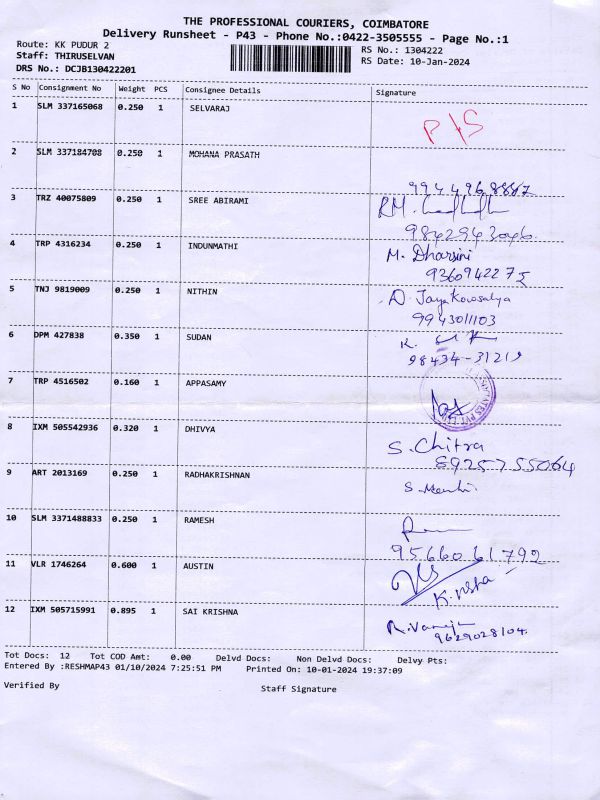 THE PROFESSIONAL COURIERS, COIMBATORE
Delivery Runsheet - P43 - Phone No.:0422-3505555 - Page No.:1
Route: KK PUDUR 2 RS No.: 1304222
Staff: THIRUSELVAN RS Date: 10-Jan-2024
DRS No.: DCJB130422201
S No Consignment No Weight PCS Consignee Details Signature
1 SLM 337165068 0.250 1 SELVARAJ
P/S
2 SLM 337184708 0.250 1 MOHANA PRASATH
3 TRZ 40075809 0.250 1 SREE ABIRAMI
RM.
9842943046
4 TRP 4316234 0.250 1 INDUNMATHI M. Dharsini
9360942275
5 TNJ 9819009 0.250 1 NITHIN D. Jaya Kowsalya
9943011103
6 DPM 427838 0.350 1 SUDAN K.
98434-31219
7 TRP 4516502 0.160 1 APPASAMY
8 IXM 505542936 0.320 1 DHIVYA
S. Chitra
8925755064
9 ART 2013169 0.250 1 RADHAKRISHNAN
10 SLM 3371488833 0.250 1 RAMESH
9566061792
11 VLR 1746264 0.600 1 AUSTIN
12 IXM 505715991 0.895 1 SAI KRISHNA
9629028104.
Tot Docs: 12 Tot COD Amt: 0.00 Delvd Docs: Non Delvd Docs: Delvy Pts:
Entered By :RESHMAP43 01/10/2024 7:25:51 PM Printed On: 10-01-2024 19:37:09
Verified By Staff Signature